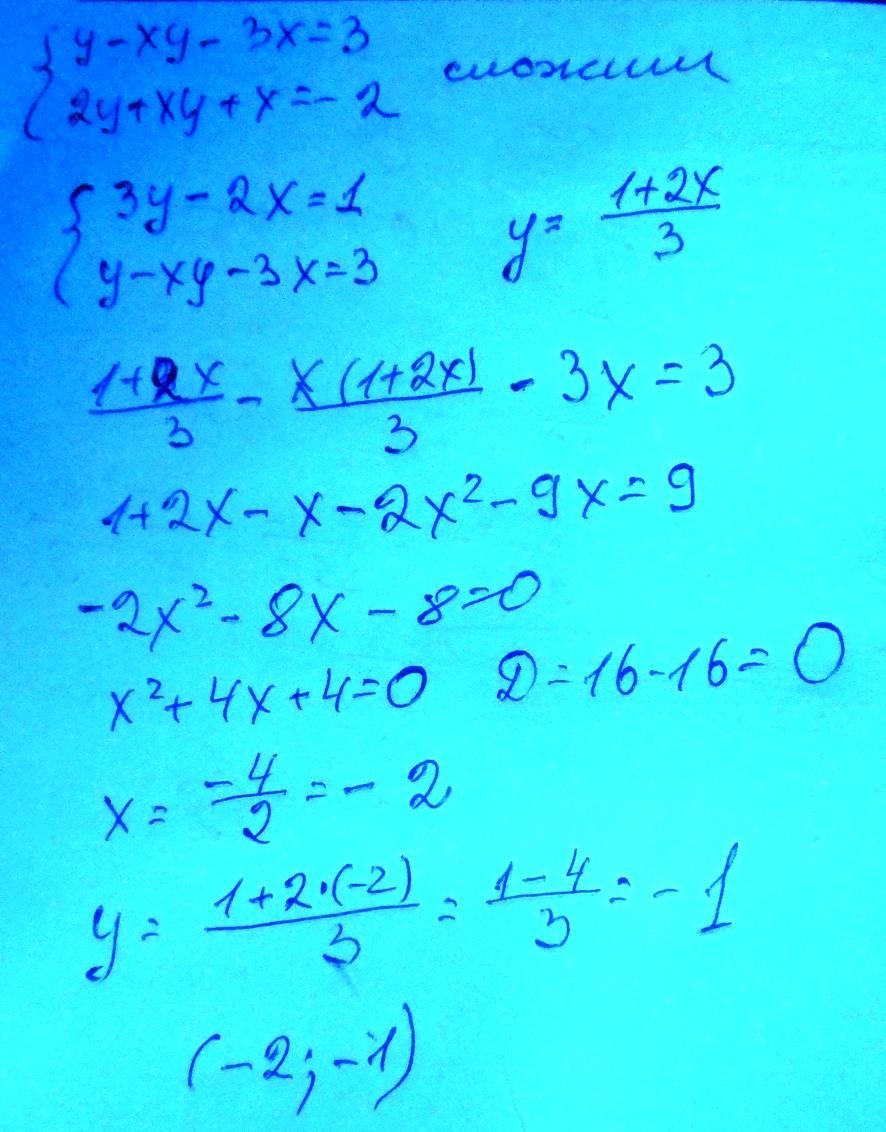 y-xy-3x=3
2y+xy+x=-2 сложим
3y-2x=1 y= 1+2x/3
y-xy-3x=3
1+2x/3 - x(1+2x)/3 - 3x=3
1+2x-x-2x²-9x=9
-2x²-8x-8=0
x²+4x+4=0 D=16-16=0
x= -4/2 =-2
y= 1+2·(-2)/3 = 1-4/3 =-1
(-2;-1)